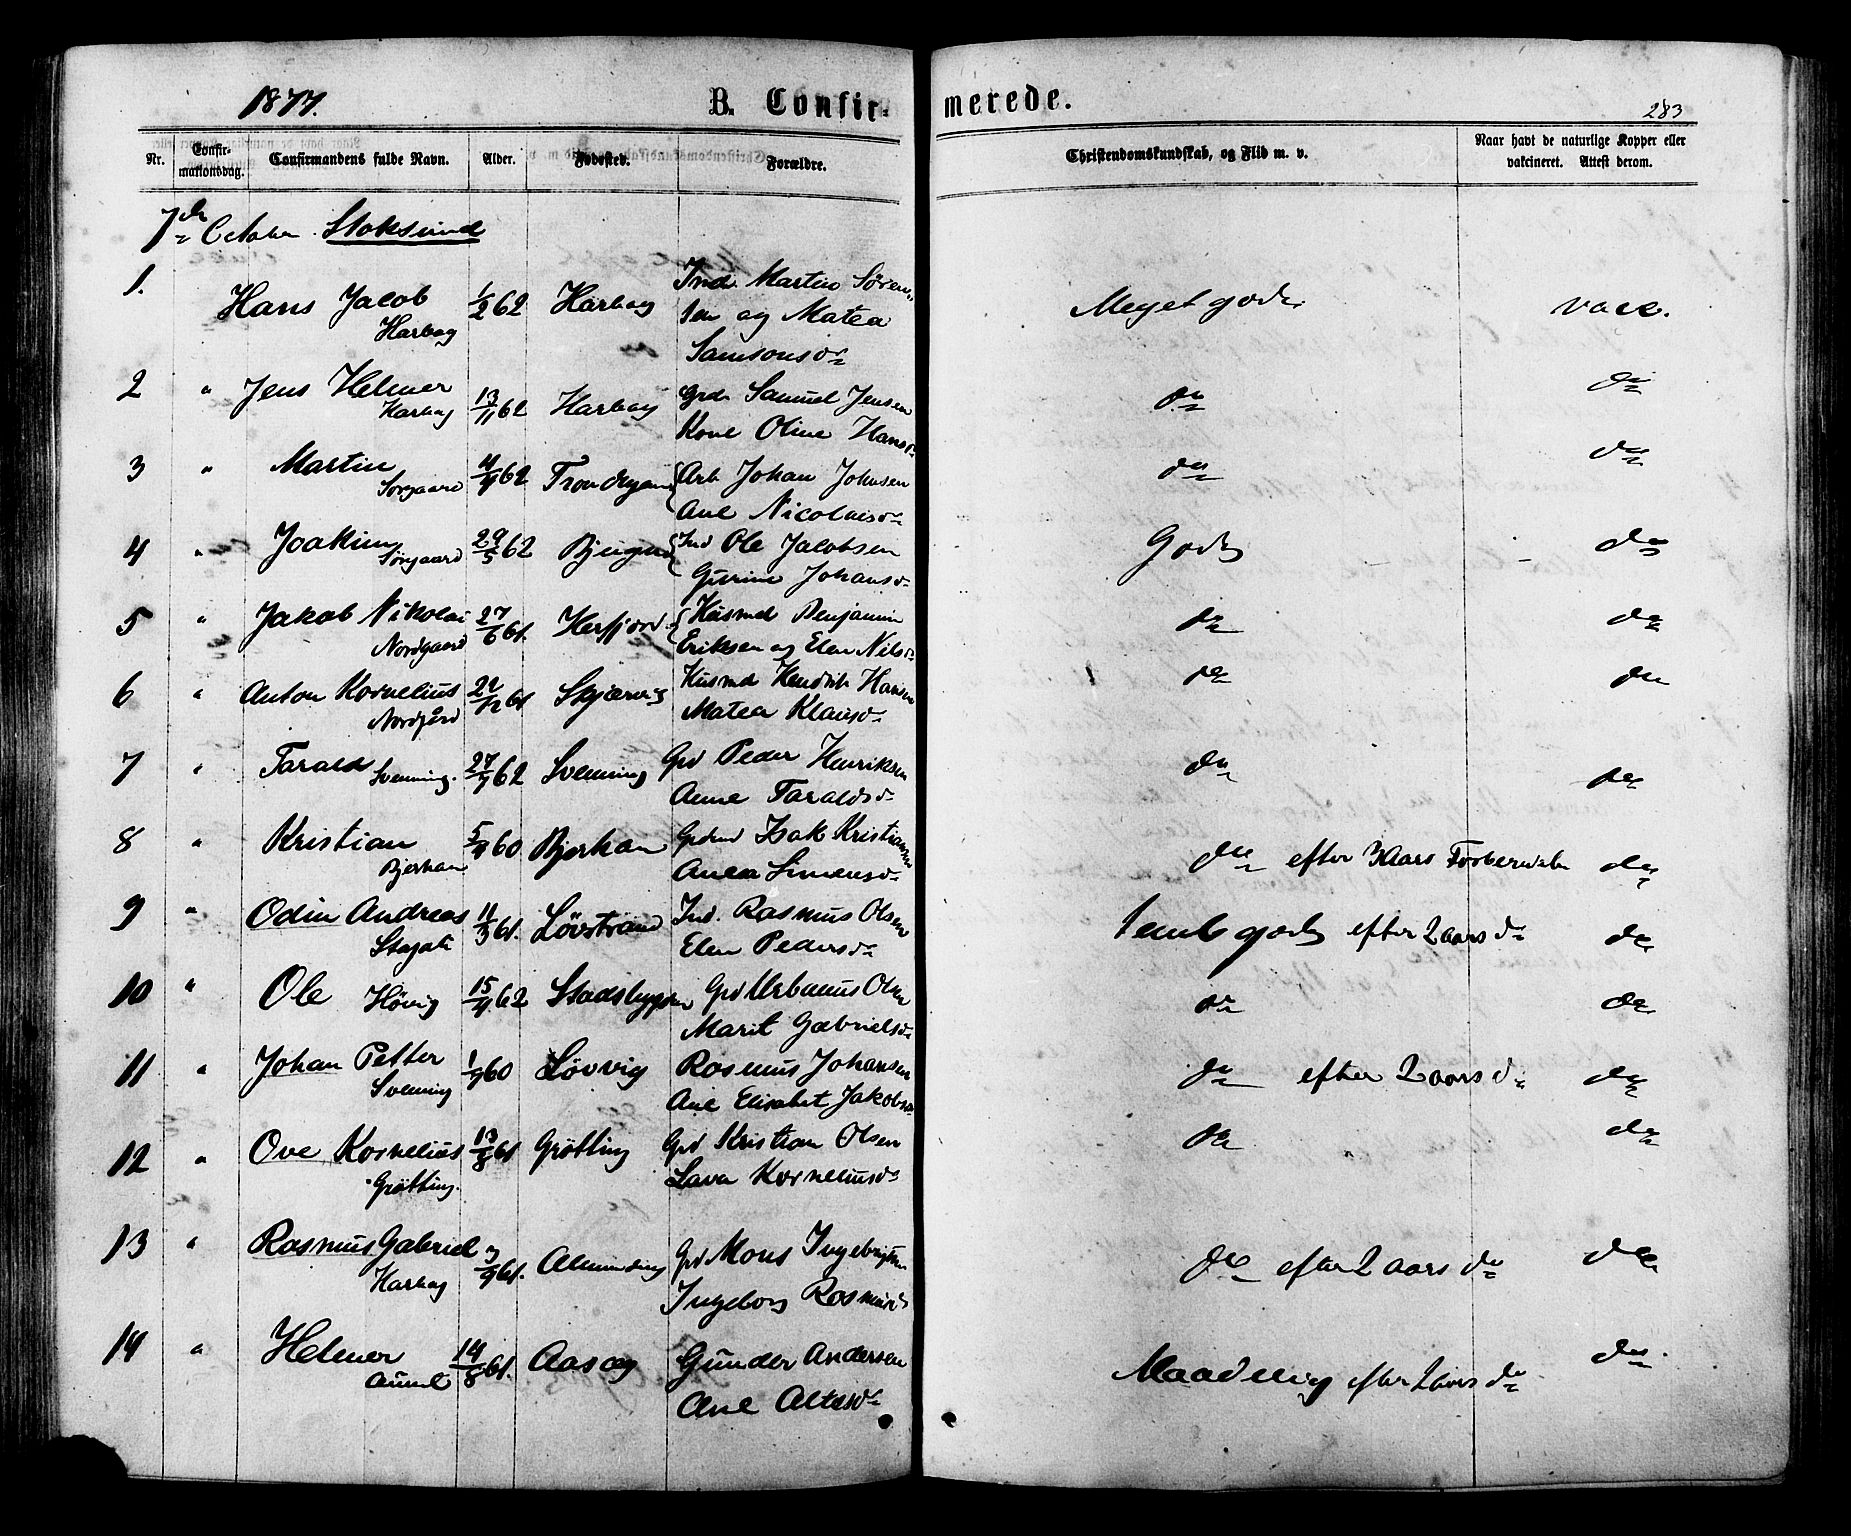 1877.
B. Confirmerede.
283
Nr. Confirmationsdag. Confirmandens fulde Navn. Alder. Fødested. Forældre. Christendomskundskab, og Flid m. v. Naar havt de naturlige Kopper eller vakcineret. Attest derom.
7de October Stoksund
1. Hans Jacob Harbag 1/2 62 Harbag Ind. Martin Sørensen og Matea Samsonsd. Meget godt vacc.
2 " Jens Helmer Harbag 13/11 62 Harbag Grd. Samuel Jensen Kone Oline Hansd. do do
3 " Martin Sørgaard 62 Arb Johan Johnsen Ane Nicolaisd. do do
4 " Joakim Sørgaard 29/5 62 Bjugn Ind Ole Jacobsen Gurine Johansd. Godt do
5 " Jakob Nikolai Nordgaard 27/6 61. Herfjord Husmd Benjamin Eriksen og Elen Nilsd. do do
6 " Anton Kornelius Nordgård 61 Skjærvig Husmd Hendrik Hansen Matea Klausd. do do
7 " Tarald Svenning. 27/7 62 Svenning Grd Peder Henriksen Anne Taraldsd. do do
8 " Kristian Bjørkan 60 Bjørkan Grdmd Isak Kristiansen Anea Simensd. do efter 3 Aars Forberedelse do
9 " Odin Andreas 11/3 61. Løvstrand Ind. Rasmus Olsen Elen Pedersd. Temlg godt efter 2 aars do do
10 " Ole Høvig 62 Stadsbygden Grd Urbanus Olsen Marit Gabrielsd. do do
11 " Johan Petter Svenning 60 Løvvig Rasmus Johansen Ane Elisabet Jakobsd. do efter 2 aars do do
12 " Ove Kornelius Grøtting. 13/8 61 Grøtting Grd Kristian Olsen Lava Korneliusd. do do
13 " Rasmus Gabriel Harbag 61. Almending Grd Mons Ingebrigtsen Ingeborg Rasmusd. do efter 2 aars do do
14 " Helmer Aunet 14/8 61. Aasæg Gunder Andersen Ane Altesd. Maadelig efter 2 aars do do